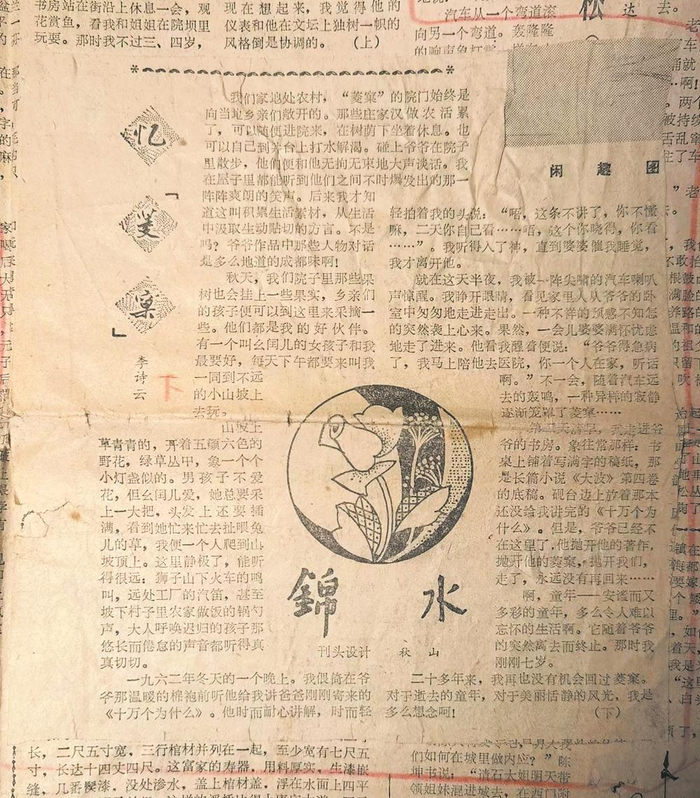 书房站在街沿上休息一会，观
花赏鱼，看我和姐姐在院坝里
玩耍。那时我不过三、四岁，
现在想起来，我觉得他的
仪表和他在文坛上独树一帜的
风格倒是协调的。（上）
汽车从一个弯道滚
向另一个弯道。轰隆隆
松
达
忆
「菱窠」
李诗云
我们家地处农村，“菱窠”的院门始终是
向当地乡亲们敞开的。那些庄家汉做农活累
了，可以随便进院来，在树荫下坐着休息。也
可以自己到茅台上打水解渴。碰上爷爷在院子
里散步，他们便和他无拘无束地大声谈话。我
在屋子里都能听到他们之间不时爆发出的那一
阵阵爽朗的笑声。后来我才知
道这叫积累生活素材，从生活
中汲取生动贴切的方言。坏是
吗？爷爷作品中那些人物对话
是多么地道的成都味啊！
秋天，我们院子里那些果
树也会挂上一些果实，乡亲们
的孩子便可以到这里来采摘一
些。他们都是我的好伙伴。
有一个叫幺闰儿的女孩子和我
最要好，每天下午都要来叫我
一同到不远
的小山坡上
去玩。
山坡上
草青青的，开着五颜六色的
野花，绿草丛中，象一个个
小灯盏似的。男孩子不爱
花，但幺闰儿爱，她总要采
上一大把，头发上还要插
满，看到她忙来忙去扯喂兔
儿的草，我便一个人爬到山
坡顶上。这里静极了，能听
得很远：狮子山下火车的鸣
叫，远处工厂的汽笛，甚至
坡下村子里农家做饭的锅勺
声，大人呼唤迟归的孩子那
悠长而倦怠的声音都听得真
真切切。
一九六二年冬天的一个晚上。我偎倚在爷
爷那温暖的棉袍前听他给我讲爸爸刚刚寄来的
《十万个为什么》。他时而耐心讲解，时而轻
闲趣图
轻拍着我的头说：“唔，这条不讲了，你不懂
嘛，二天你自己看……唔，这个你晓得，你看
……”。我听得入了神，直到婆婆催我睡觉，
我才离开他。
就在这天半夜，我被一阵尖啸的汽车喇叭
声惊醒。我睁开眼睛，看见家里人从爷爷的卧
室中匆匆地走进走出。一种不祥的预感不知怎
的突然袭上心来。果然，一会儿婆婆满怀忧虑
地走了进来。他看我醒着便说：“爷爷得急病
了，我马上陪他去医院，你一个人在家，听话
啊。”不一会，随着汽车远
去的轰鸣，一种异样的寂静
逐渐笼罩了菱窠……
爷的书房。象往常那样：书
桌上铺着写满字的稿纸，那
是长篇小说《大波》第四卷
的底稿。砚台边上放着那本
还没给我讲完的《十万个为
什么》。但是，爷爷已经不
在这里了，他抛开他的著作，
抛开他的菱窠，抛开我们，
走了，永远没有再回来……
啊，童年——安谧而又
多彩的童年，多么令人难以
忘怀的生活啊。它随着爷爷
的突然离去而终止。那时我
刚刚七岁。
二十多年来，我再也没有机会回过菱窠。
对于逝去的童年，对于美丽恬静的风光，我是
多么想念呵！（下）
錦水
刊头设计 秋山
长，二尺五寸宽，三行棺材并列在一起，至少宽有七尺五
寸，长达十四丈四尺。这富家的寿器，用料厚实，生漆嵌
缝，几番髹漆，没处渗水，盖上棺材盖，浮在水面上四平
们如何在城里做内应？”陈
坤书说：“请石大姐明天带
领姐妹混进城去，在西门附